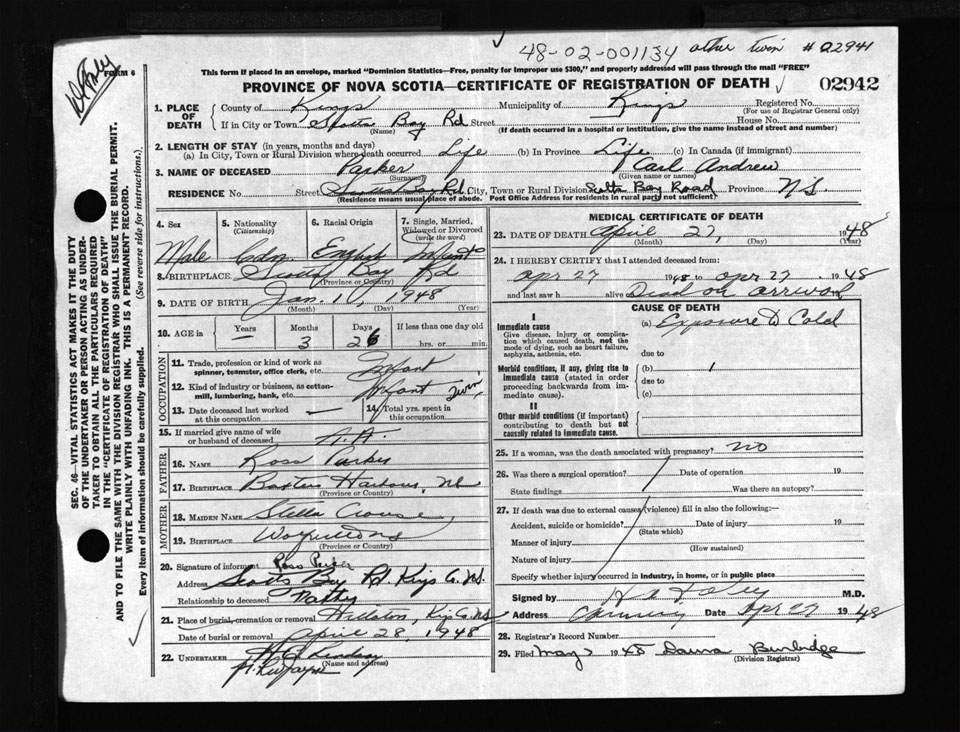 48-02-001134 other twin # 02941
FORM 6
This form if placed in an envelope, marked "Dominion Statistics—Free, penalty for improper use $300," and properly addressed will pass through the mail "FREE"
PROVINCE OF NOVA SCOTIA—CERTIFICATE OF REGISTRATION OF DEATH 02942
SEC. 46—VITAL STATISTICS ACT MAKES IT THE DUTY
OF THE UNDERTAKER OR PERSON ACTING AS UNDER-
TAKER TO OBTAIN ALL THE PARTICULARS REQUIRED
IN THE "CERTIFICATE OF REGISTRATION OF DEATH"
AND TO FILE THE SAME WITH THE DIVISION REGISTRAR WHO SHALL ISSUE THE BURIAL PERMIT.
WRITE PLAINLY WITH UNFADING INK. THIS IS A PERMANENT RECORD.
Every item of information should be carefully supplied. (See reverse side for instructions.)
1. PLACE OF DEATH
County of Kings Municipality of Kings Registered No.
(For use of Registrar General only)
If in City or Town Scotts Bay Rd Street House No.
(Name) (If death occurred in a hospital or institution, give the name instead of street and number)
2. LENGTH OF STAY (in years, months and days)
(a) In City, Town or Rural Division where death occurred Life (b) In Province Life (c) In Canada (if immigrant)
3. NAME OF DECEASED Parker Carl Andrew
(Surname) (Given name or names)
RESIDENCE No. Street Scotts Bay Rd City, Town or Rural Division Scotts Bay Road Province N.S.
(Residence means usual place of abode. Post Office Address for residents in rural parts not sufficient)
4. Sex Male
5. Nationality (Citizenship) Cdn.
6. Racial Origin English
7. Single, Married, Widowed or Divorced (write the word) Infant
8. BIRTHPLACE Scotts Bay Rd
(Province or Country)
9. DATE OF BIRTH Jan. 1, 1948
(Month) (Day) (Year)
10. AGE in Years — Months 3 Days 26 If less than one day old hrs. or min.
OCCUPATION
11. Trade, profession or kind of work as spinner, teamster, office clerk, etc. Infant
12. Kind of industry or business, as cotton-mill, lumbering, bank, etc. Infant Twin
13. Date deceased last worked at this occupation —
14. Total yrs. spent in this occupation
15. If married give name of wife or husband of deceased
FATHER
16. NAME Ross Parker
17. BIRTHPLACE Baxters Harbour, NS
(Province or Country)
MOTHER
18. MAIDEN NAME Stella Crouse
19. BIRTHPLACE
(Province or Country)
20. Signature of informant Ross Parker
Address Scotts Bay Rd Kings Co. N.S.
Relationship to deceased
21. Place of burial, cremation or removal Hillaton, Kings Co. NS
Date of burial or removal April 28, 1948
22. UNDERTAKER
(Name and address)
MEDICAL CERTIFICATE OF DEATH
23. DATE OF DEATH April 27, 1948
(Month) (Day) (Year)
24. I HEREBY CERTIFY that I attended deceased from:
Apr 27 1948 to Apr 27 1948
and last saw h alive Dead on arrival
CAUSE OF DEATH
I
Immediate cause
Give disease, injury or complication which caused death, not the mode of dying, such as heart failure, asphyxia, asthenia, etc.
(a) Exposure to Cold
due to
Morbid conditions, if any, giving rise to immediate cause (stated in order proceeding backwards from immediate cause)
(b)
due to
(c)
II
Other morbid conditions (if important) contributing to death but not causally related to immediate cause.
25. If a woman, was the death associated with pregnancy? No
26. Was there a surgical operation? Date of operation 19
State findings Was there an autopsy?
27. If death was due to external causes (violence) fill in also the following:—
Accident, suicide or homicide? Date of injury 19
(State which)
Manner of injury
(How sustained)
Nature of injury
Specify whether injury occurred in industry, in home, or in public place
Signed by M.D.
Address Canning Date Apr 27 1948
28. Registrar's Record Number
29. Filed May 1948 Burbidge
(Division Registrar)